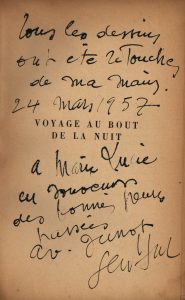 tous les dessins
ont été retouchés
de ma main.
24 mars 1957
VOYAGE AU BOUT
DE LA NUIT
à Marie Lucie
en souvenir
des bonnes heures
passées
av. Junot
Gen Paul